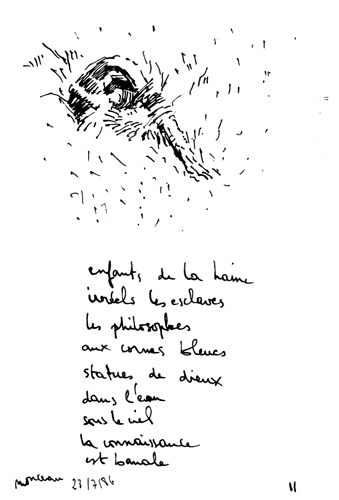 enfants de la haine
irréels les esclaves
les philosophes
aux cornes bleues
statues de dieux
dans l'eau
sous le ciel
la connaissance
est banale
Monceau 27/7/96
11